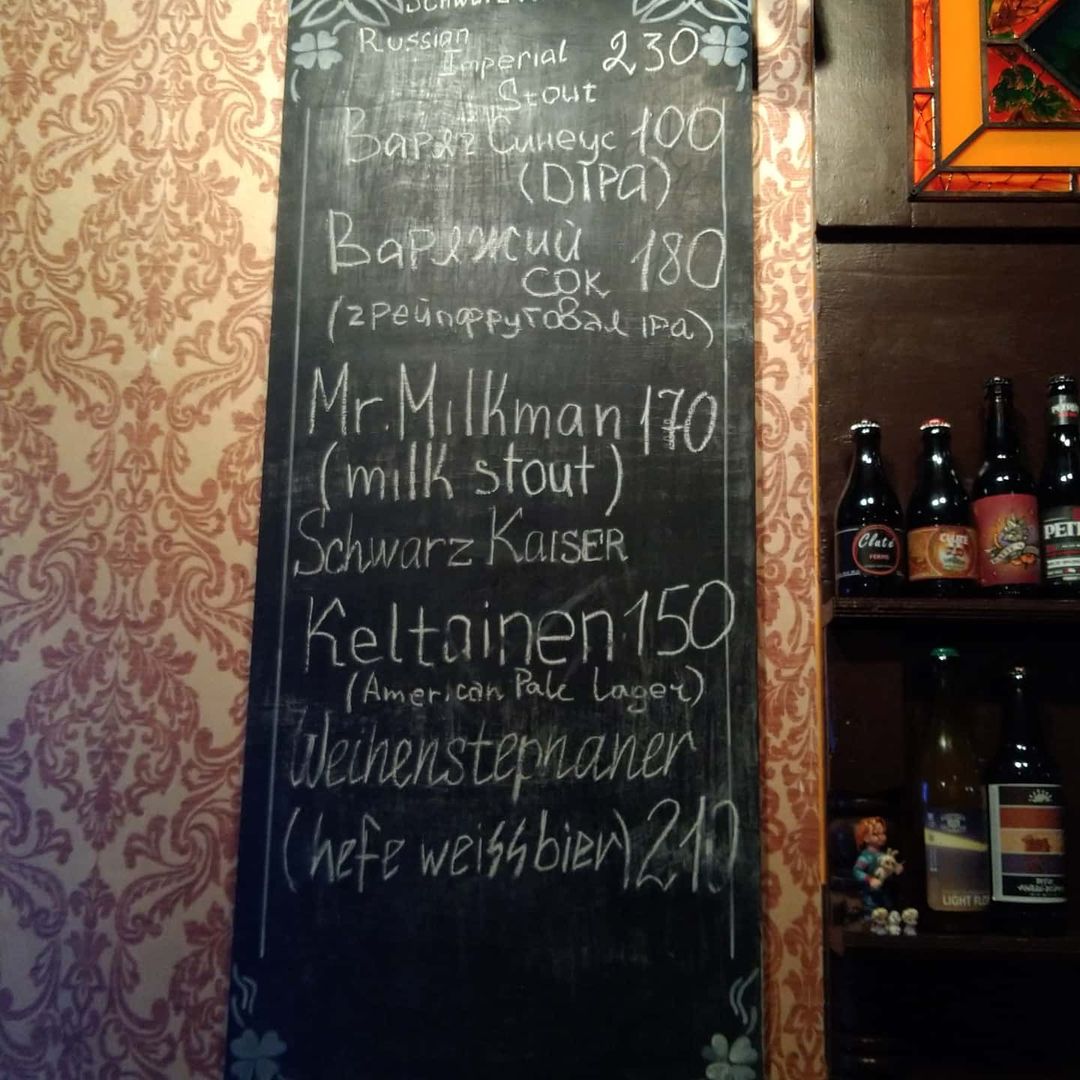 Russian
Imperial 230
Stout
Варяг Синеус 100
(DIPA)
Варяжий 180
сок
(грейпфрутовая IPA)
Mr. Milkman 170
(milk stout)
Schwarz Kaiser
Keltainen 150
(American Pale Lager)
Weihenstephaner
(hefe weissbier) 210
Clute
CLUTE
PETRUS
LIGHT